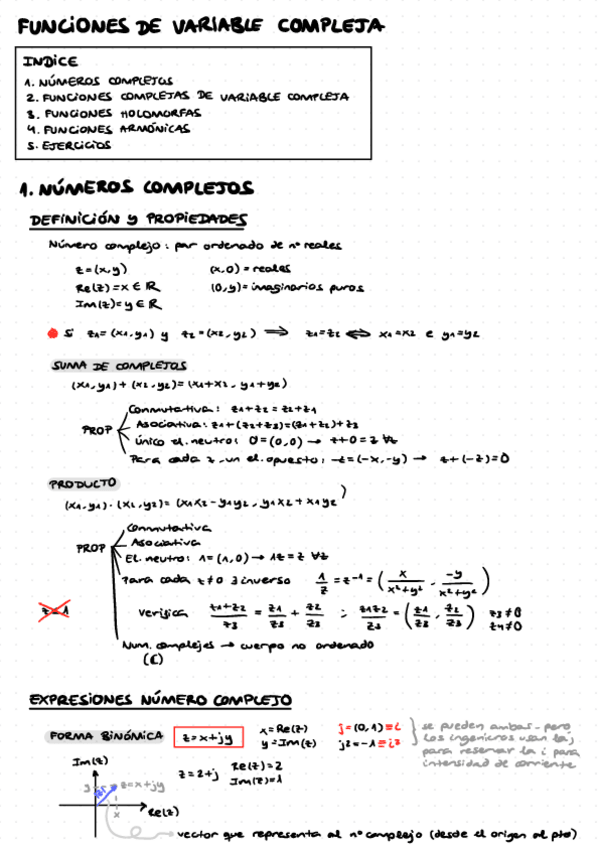 FUNCIONES DE VARIABLE COMPLEJA
INDICE
1. NÚMEROS COMPLEJOS
2. FUNCIONES COMPLEJAS DE VARIABLE COMPLEJA
3. FUNCIONES HOLOMORFAS
4. FUNCIONES ARMÓNICAS
5. EJERCICIOS
1. NÚMEROS COMPLEJOS
DEFINICIÓN y PROPIEDADES
Número complejo: par ordenado de nº reales
z=(x,y) (x,0)=reales
Re(z)=x∈ℝ (0,y)=imaginarios puros
Im(z)=y∈ℝ
Si z1=(x1,y1) y z2=(x2,y2) ⟹ z1=z2 ⟺ x1=x2 e y1=y2
SUMA DE COMPLEJOS
(x1,y1)+(x2,y2)=(x1+x2, y1+y2)
PROP
Conmutativa: z1+z2=z2+z1
Asociativa: z1+(z2+z3)=(z1+z2)+z3
Único el. neutro: 0=(0,0) → z+0=z ∀z
Para cada z, un el. opuesto: -z=(-x,-y) → z+(-z)=0
PRODUCTO
(x1,y1)·(x2,y2)=(x1x2-y1y2, y1x2+x1y2)
PROP
Conmutativa
Asociativa
El. neutro: 1=(1,0) → 1z=z ∀z
Para cada z≠0 ∃ inverso 1/z = z-1 = (x/x²+y², -y/x²+y²)
z=1
Verifica z1+z2/z3 = z1/z3 + z2/z3 ; z1z2/z3 = (z1/z3 · z2/z3) z3≠0
z4≠0
Num. complejos → cuerpo no ordenado
(ℂ)
EXPRESIONES NÚMERO COMPLEJO
FORMA BINÓMICA z=x+jy x=Re(z) j=(0,1)≡i
y=Im(z) j2=-1≡i2
se pueden ambas, pero
los ingenieros usan la j
para reservar la i para
intensidad de corriente
Im(z)
z=2+j Re(z)=2
Im(z)=1
z=x+jy
x
Re(z)
vector que representa al nº complejo (desde el origen al pto)